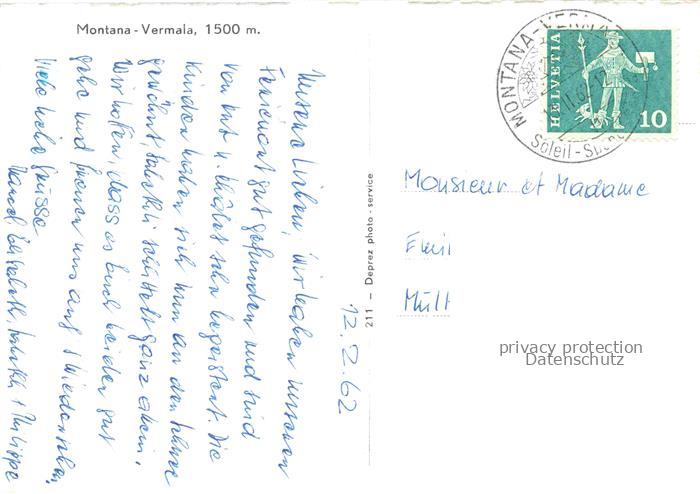 Montana - Vermala, 1500 m.
Unsere Lieben, Wir haben unseren
Ferienort gut gefunden und sind
von Ort u. sehr begeistert. Die
Kinder haben sich nun an den Schnee
gewöhnt, schlittelt ganz allein.
Wir hoffen, dass es Euch beiden gut
gehe und freuen uns auf's Wiedersehen.
Viele liebe Grüsse
Philippe
12.2.62
211 - Deprez photo - service
MONTANA-VERMALA
Soleil - Sports
HELVETIA
10
Monsieur et Madame
Emil
privacy protection
Datenschutz